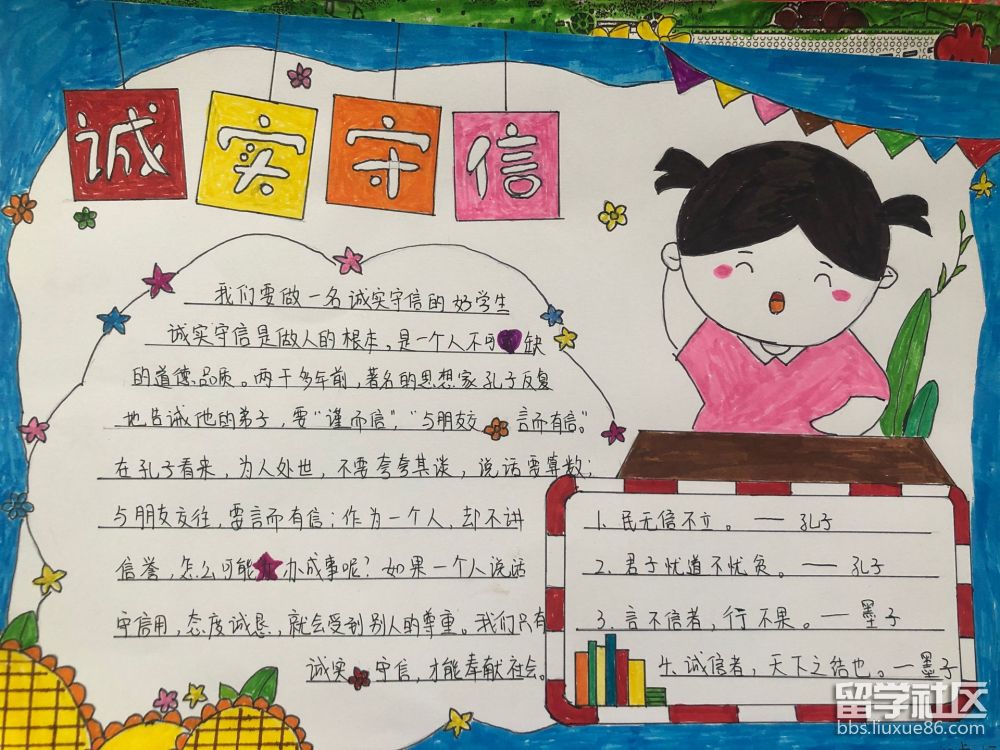 诚实守信
我们要做一名诚实守信的好学生
诚实守信是做人的根本，是一个人不可缺
的道德品质。两千多年前，著名的思想家孔子反复
地告诫他的弟子，要"谨而信"，"与朋友交 言而有信"。
在孔子看来，为人处世，不要夸夸其谈，说话要算数；
与朋友交往，要言而有信；作为一个人，却不讲
信誉，怎么可能 办成事呢？如果一个人说话
守信用，态度诚恳，就会受到别人的尊重。我们只有
诚实 守信，才能奉献社会。
1. 民无信不立。—— 孔子
2. 君子忧道不忧贫。—— 孔子
3. 言不信者，行不果。—— 墨子
4. 诚信者，天下之结也。—墨子
留学社区
bbs.liuxue86.com